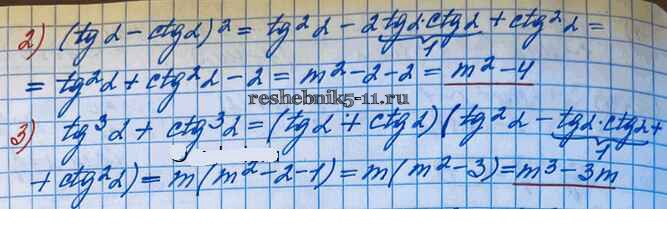 2) (tgα - ctgα)² = tg²α - 2tgα·ctgα + ctg²α =
1
= tg²α + ctg²α - 2 = m² - 2 - 2 = m² - 4
reshebnik5-11.ru
3) tg³α + ctg³α = (tgα + ctgα)(tg²α - tgα·ctgα +
1
+ ctg²α) = m(m² - 2 - 1) = m(m² - 3) = m³ - 3m